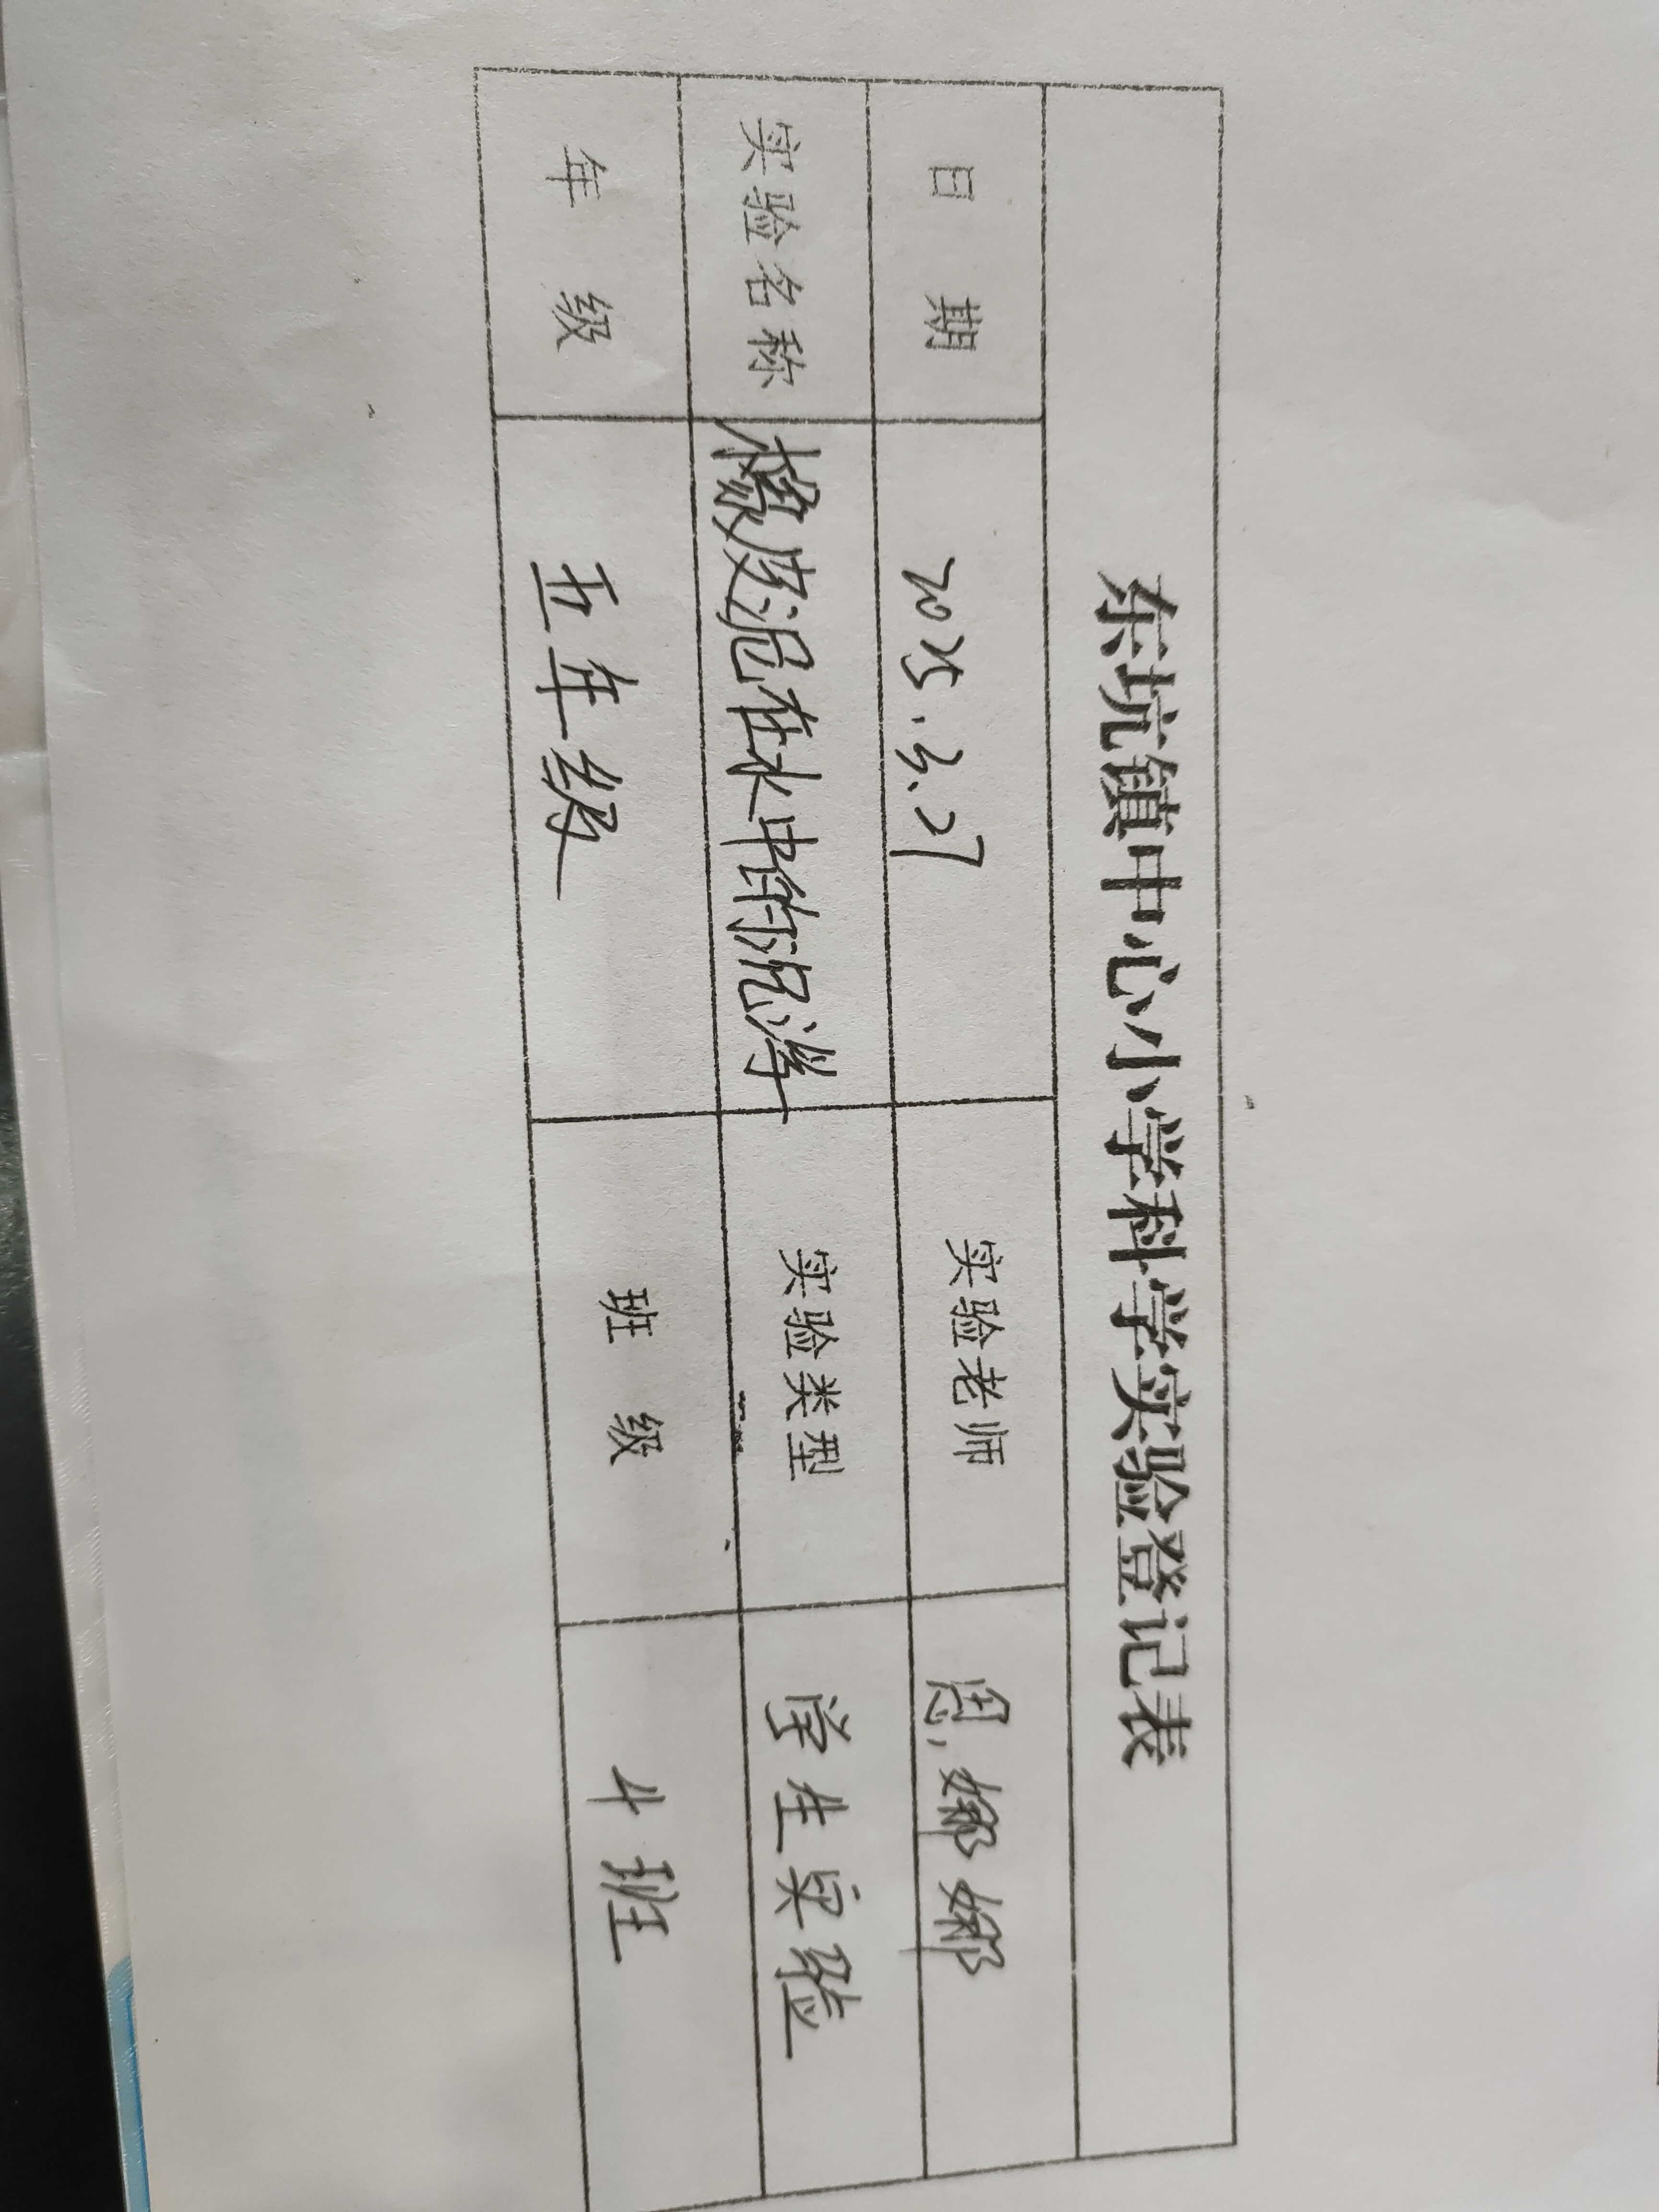 东坑镇中心小学科学实验登记表
日期 2025.3.27 实验老师 娜娜
实验名称 橡皮泥在水中的沉浮 实验类型 学生实验
年级 五年级 班级 4班